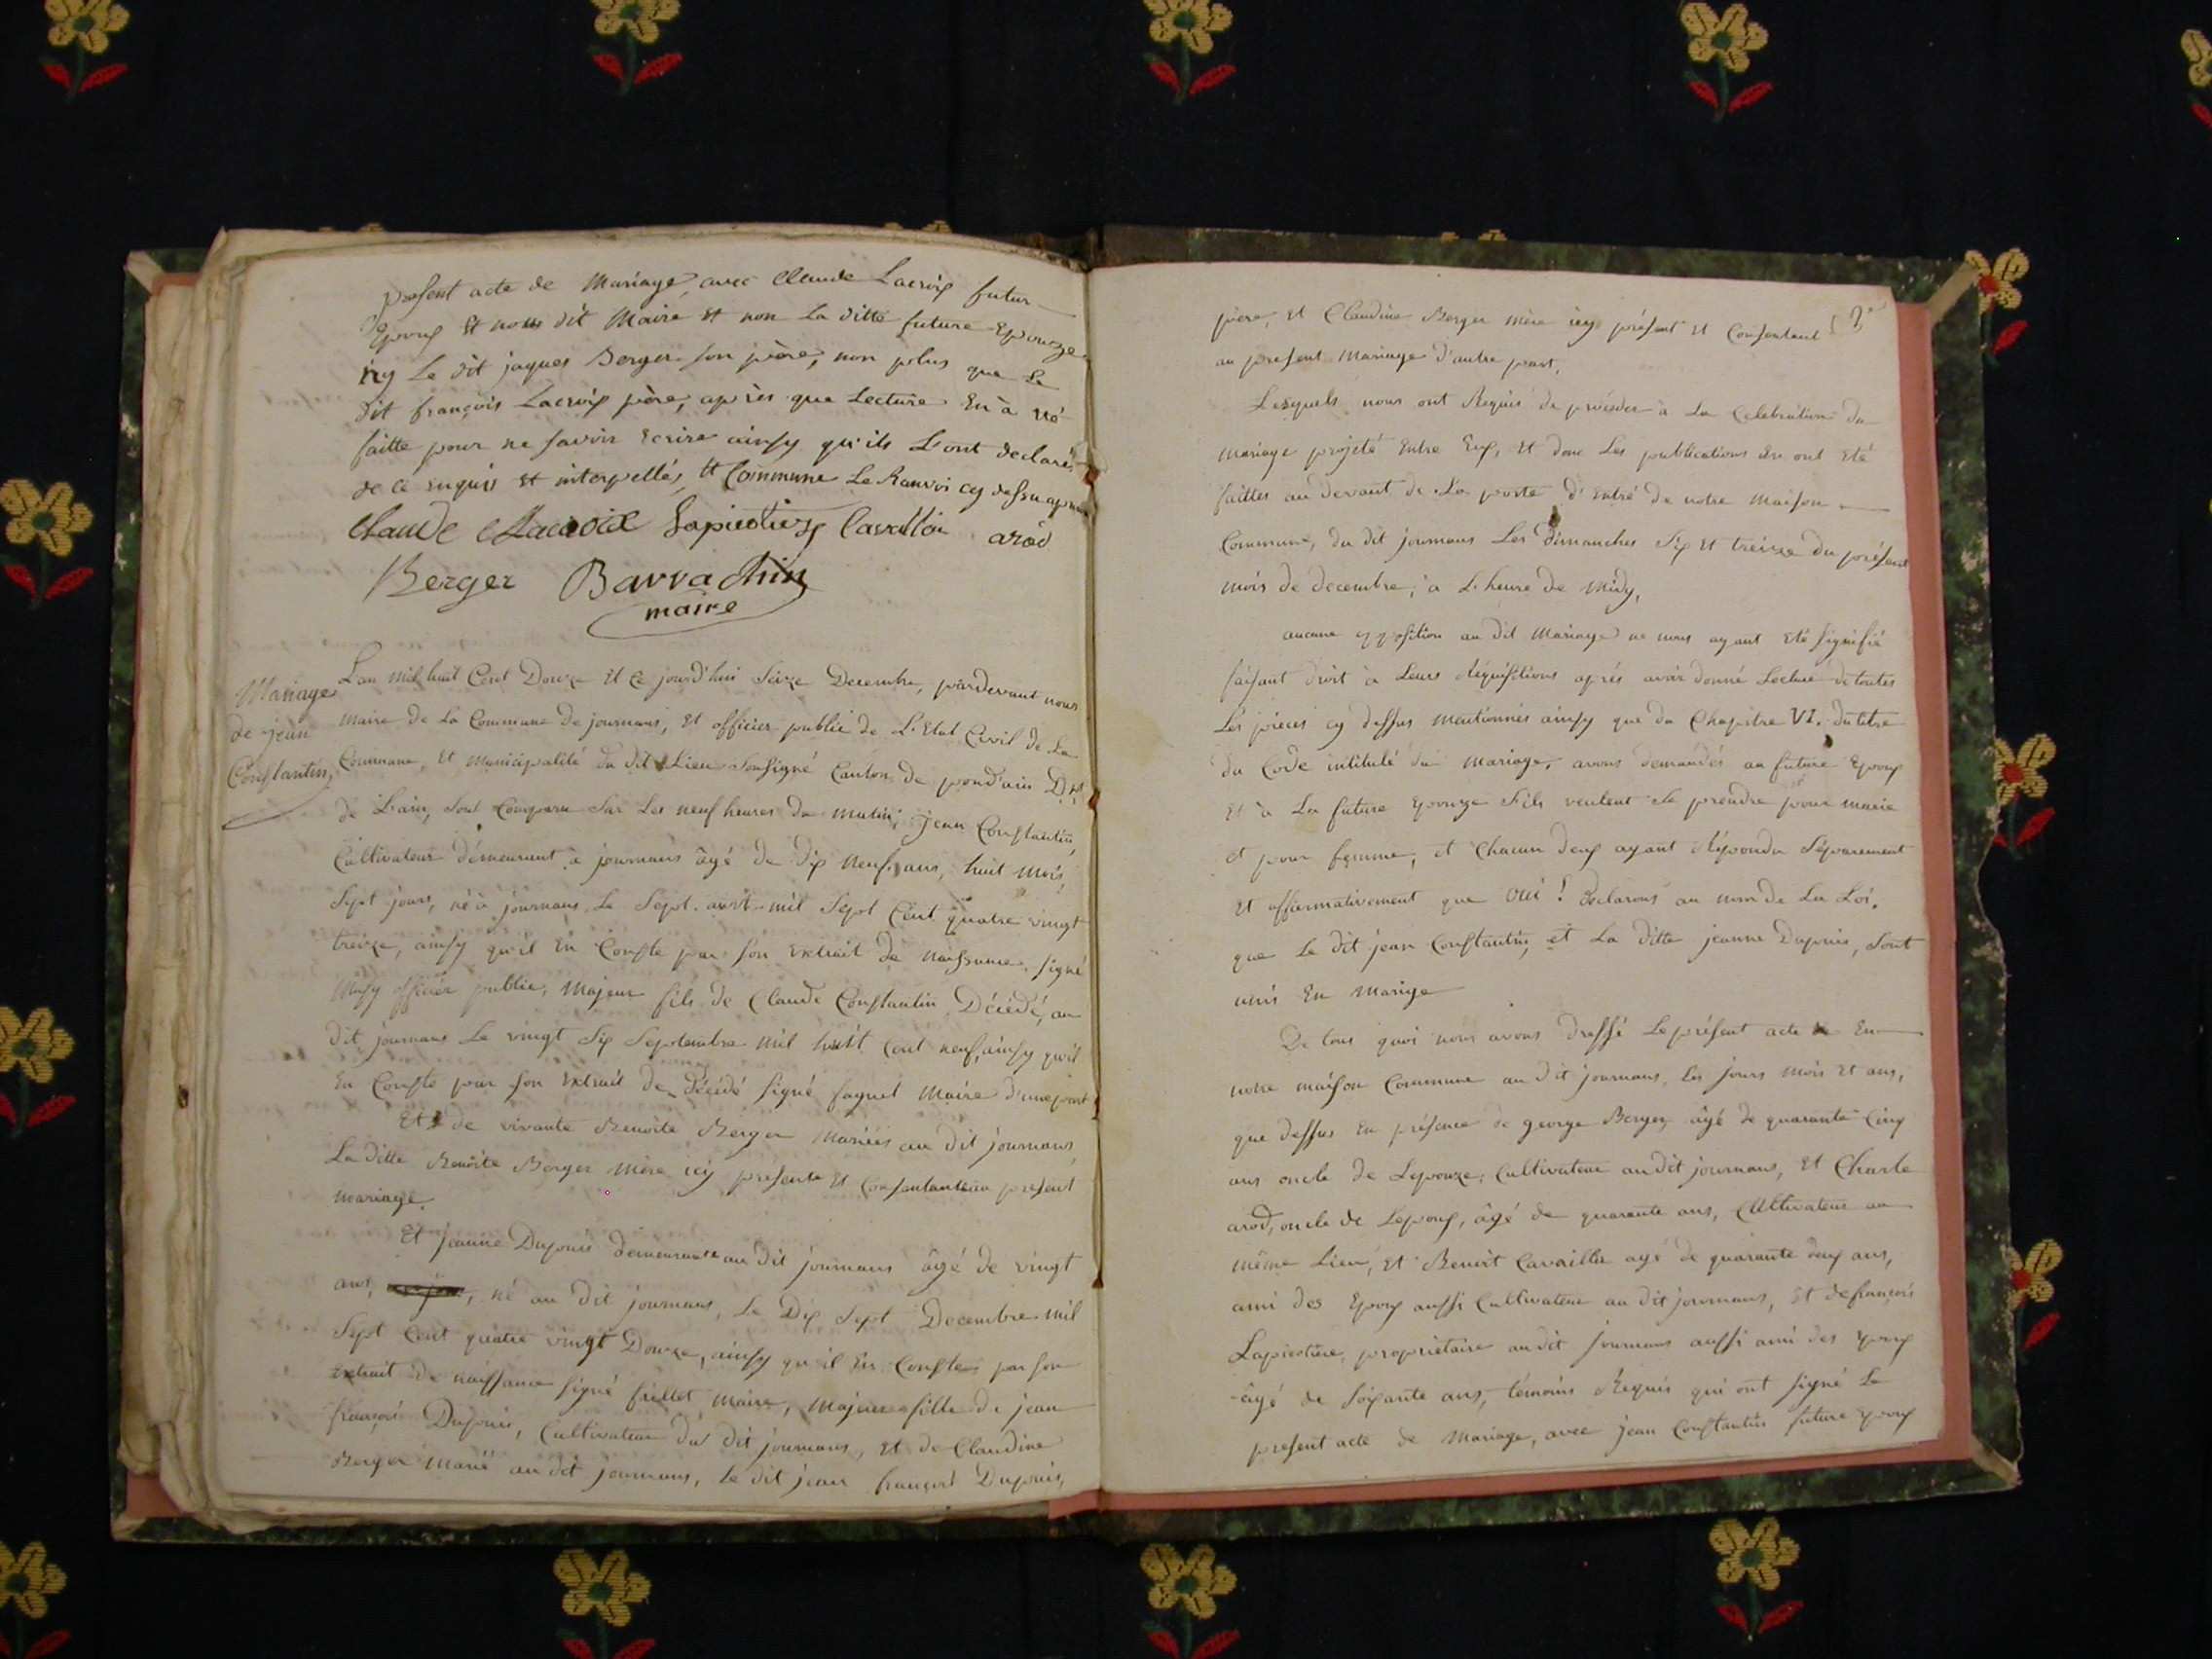 present acte de Mariage, avec Claude Lacroix futur
Epoux Et nous dit Maire Et non La ditte future Epouze
ny Le dit jaques Berger son père, non plus que Le
dit françois Lacroix père, après que Lecture En à été
faitte pour ne savoir Ecrire ainsy qu'ils L'ont declaré
de ce Enquis Et interpellés,
Claude Lacroix Lapicotiere Cavallin arod
Berger Barrachin
maire
Mariage
de jean
Constantin
L'an mil huit Cent Douze Et Ce jourd'hui Seize Decembre, pardevant nous
Maire de La Commune de journans, Et officier public de L'Etat Civil de La
Commune, Et Municipalité du dit Lieu Soussigné Canton de pond'ain Dt
de L'ain, Sont Comparu Sur Les neuf heures du Matin, jean Constantin,
Cultivateur démeurant à journans âgé de dix Neuf ans, huit Mois
Sept jours, né à journans Le Sept avrit mil Sept Cent quatre vingt
treize, ainsy qu'il En Conste par son Extrait de naissance, signé
officier public, Majeur fils de Claude Constantin Décédé, au
dit journans Le vingt Six Septembre mil huit Cent neuf, ainsy qu'il
En Conste par son Extrait de Décédé signé faguet Maire d'une part
Et de vivante Benoite Berger Mariées au dit journans,
La ditte Benoite Berger Mère icy présente Et Consentante au présent
mariage.
Et jeanne Dupuis demeurante au dit journans âgé de vingt
ans, né au dit journans, Le Dix Sept Decembre mil
Sept Cent quatre vingt Douze, ainsy qu'il En Conste par son
Extrait de naissance signé fillet Maire, Majeure fille de jean
françois Dupuis, Cultivateur du dit journans, Et de Claudine
Berger Marié au dit journans, Le dit jean françois Dupuis,
père, Et Claudine Berger Mère icy présent Et Consentent
au present Mariage d'autre part.
Lesquels nous ont Requis de procéder à La Celebration du
Mariage projeté Entre Eux, Et donc Les publications En ont Eté
faittes au devant de La porte d'Entré de notre Maison
Commune, du dit journans Les dimanches Six Et treize du présent
mois de decembre, à L'heure de Midy,
aucune opposition au dit Mariage ne nous ayant Eté signifié
faisant droit à Leurs Réquisitions après avoir donné Lecture de toutes
Les pièces cy dessus mentionnés ainsy que du Chapitre VI. du titre
du Code intitulé du Mariage, avons demandés au future Epoux
Et à La future Epouze S'ils veulent Se prendre pour marie
et pour femme, et Chacun deux ayant Répondu Séparement
Et affirmativement que oui! Declarons au nom de La Loi.
que Le dit jean Constantin, et La ditte jeanne Dupuis, Sont
unis En Marige
De tous quoi nous avons dressé Le présent acte En
notre maison Commune au dit journans, Les jours mois Et ans,
que dessus En présence de george Berger, âgé de quarante Cinq
ans oncle de Lepouze, Cultivateur au dit journans, Et Charle
arod, oncle de Lepoux, âgé de quarante ans, Cultivateur au
même Lieu, Et Benoit Cavaillin agé de quarante deux ans,
ami des Epoux aussi Cultivateur au dit journans, Et de françois
Lapicotiere, propriétaire au dit journans aussi ami des Epoux
âgé de Soixante ans, témoins Requis qui ont signé Le
present acte de Mariage, avec jean Constantin future Epoux